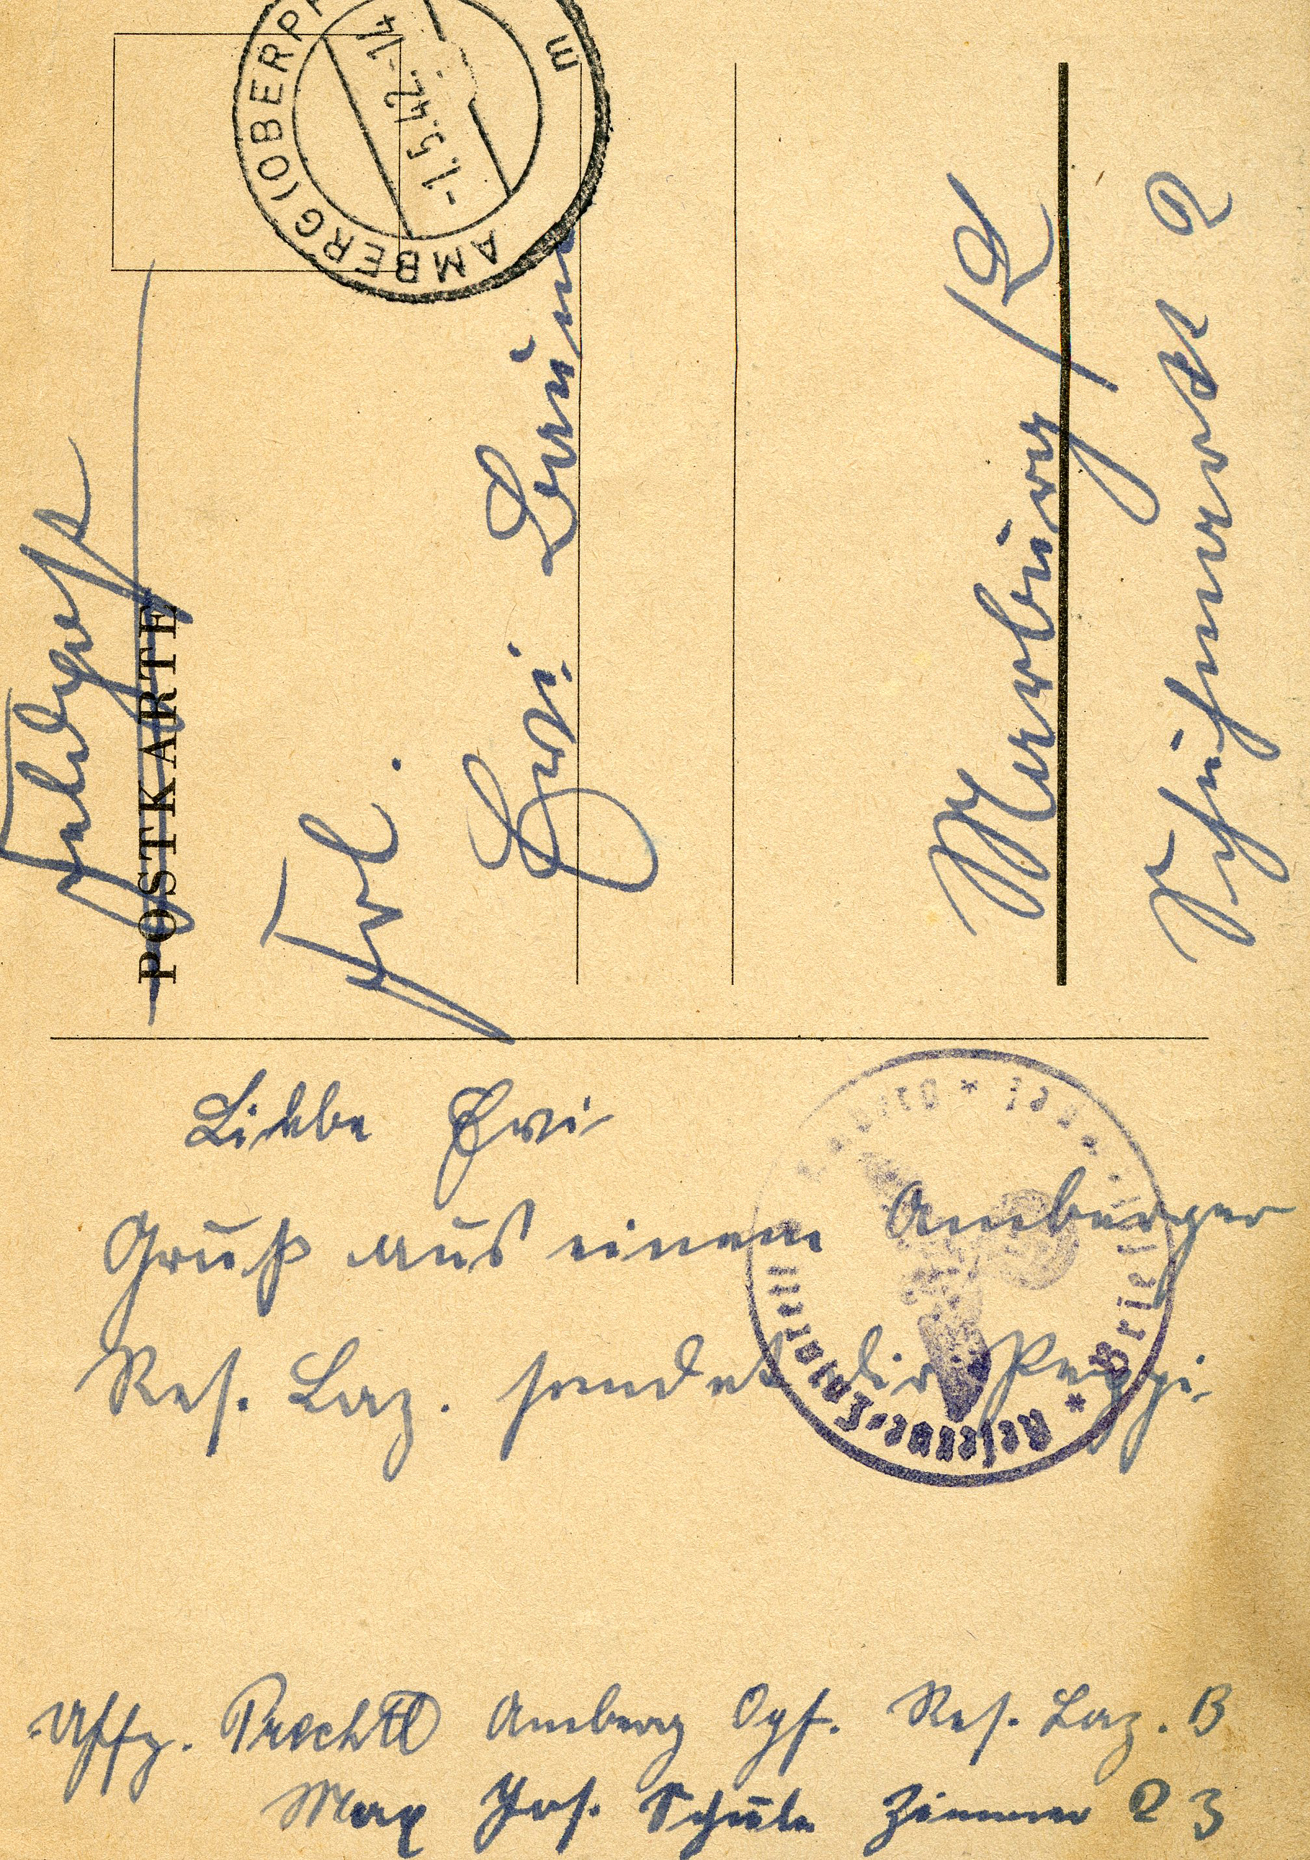 AMBERG (OBERPF
-1.5.42.-14
m
Feldpost
POSTKARTE
Frl.
Evi
Marburg / L
Schuhmarkt 2
Liebe Evi
Gruß aus einem Amberger
Res. Laz. sendet dir Peppi.
Reserve-Lazarett
* Brief
Uffz. Prechtl Amberg Opf. Res. Laz. B
Max Jos. Schule Zimmer 23